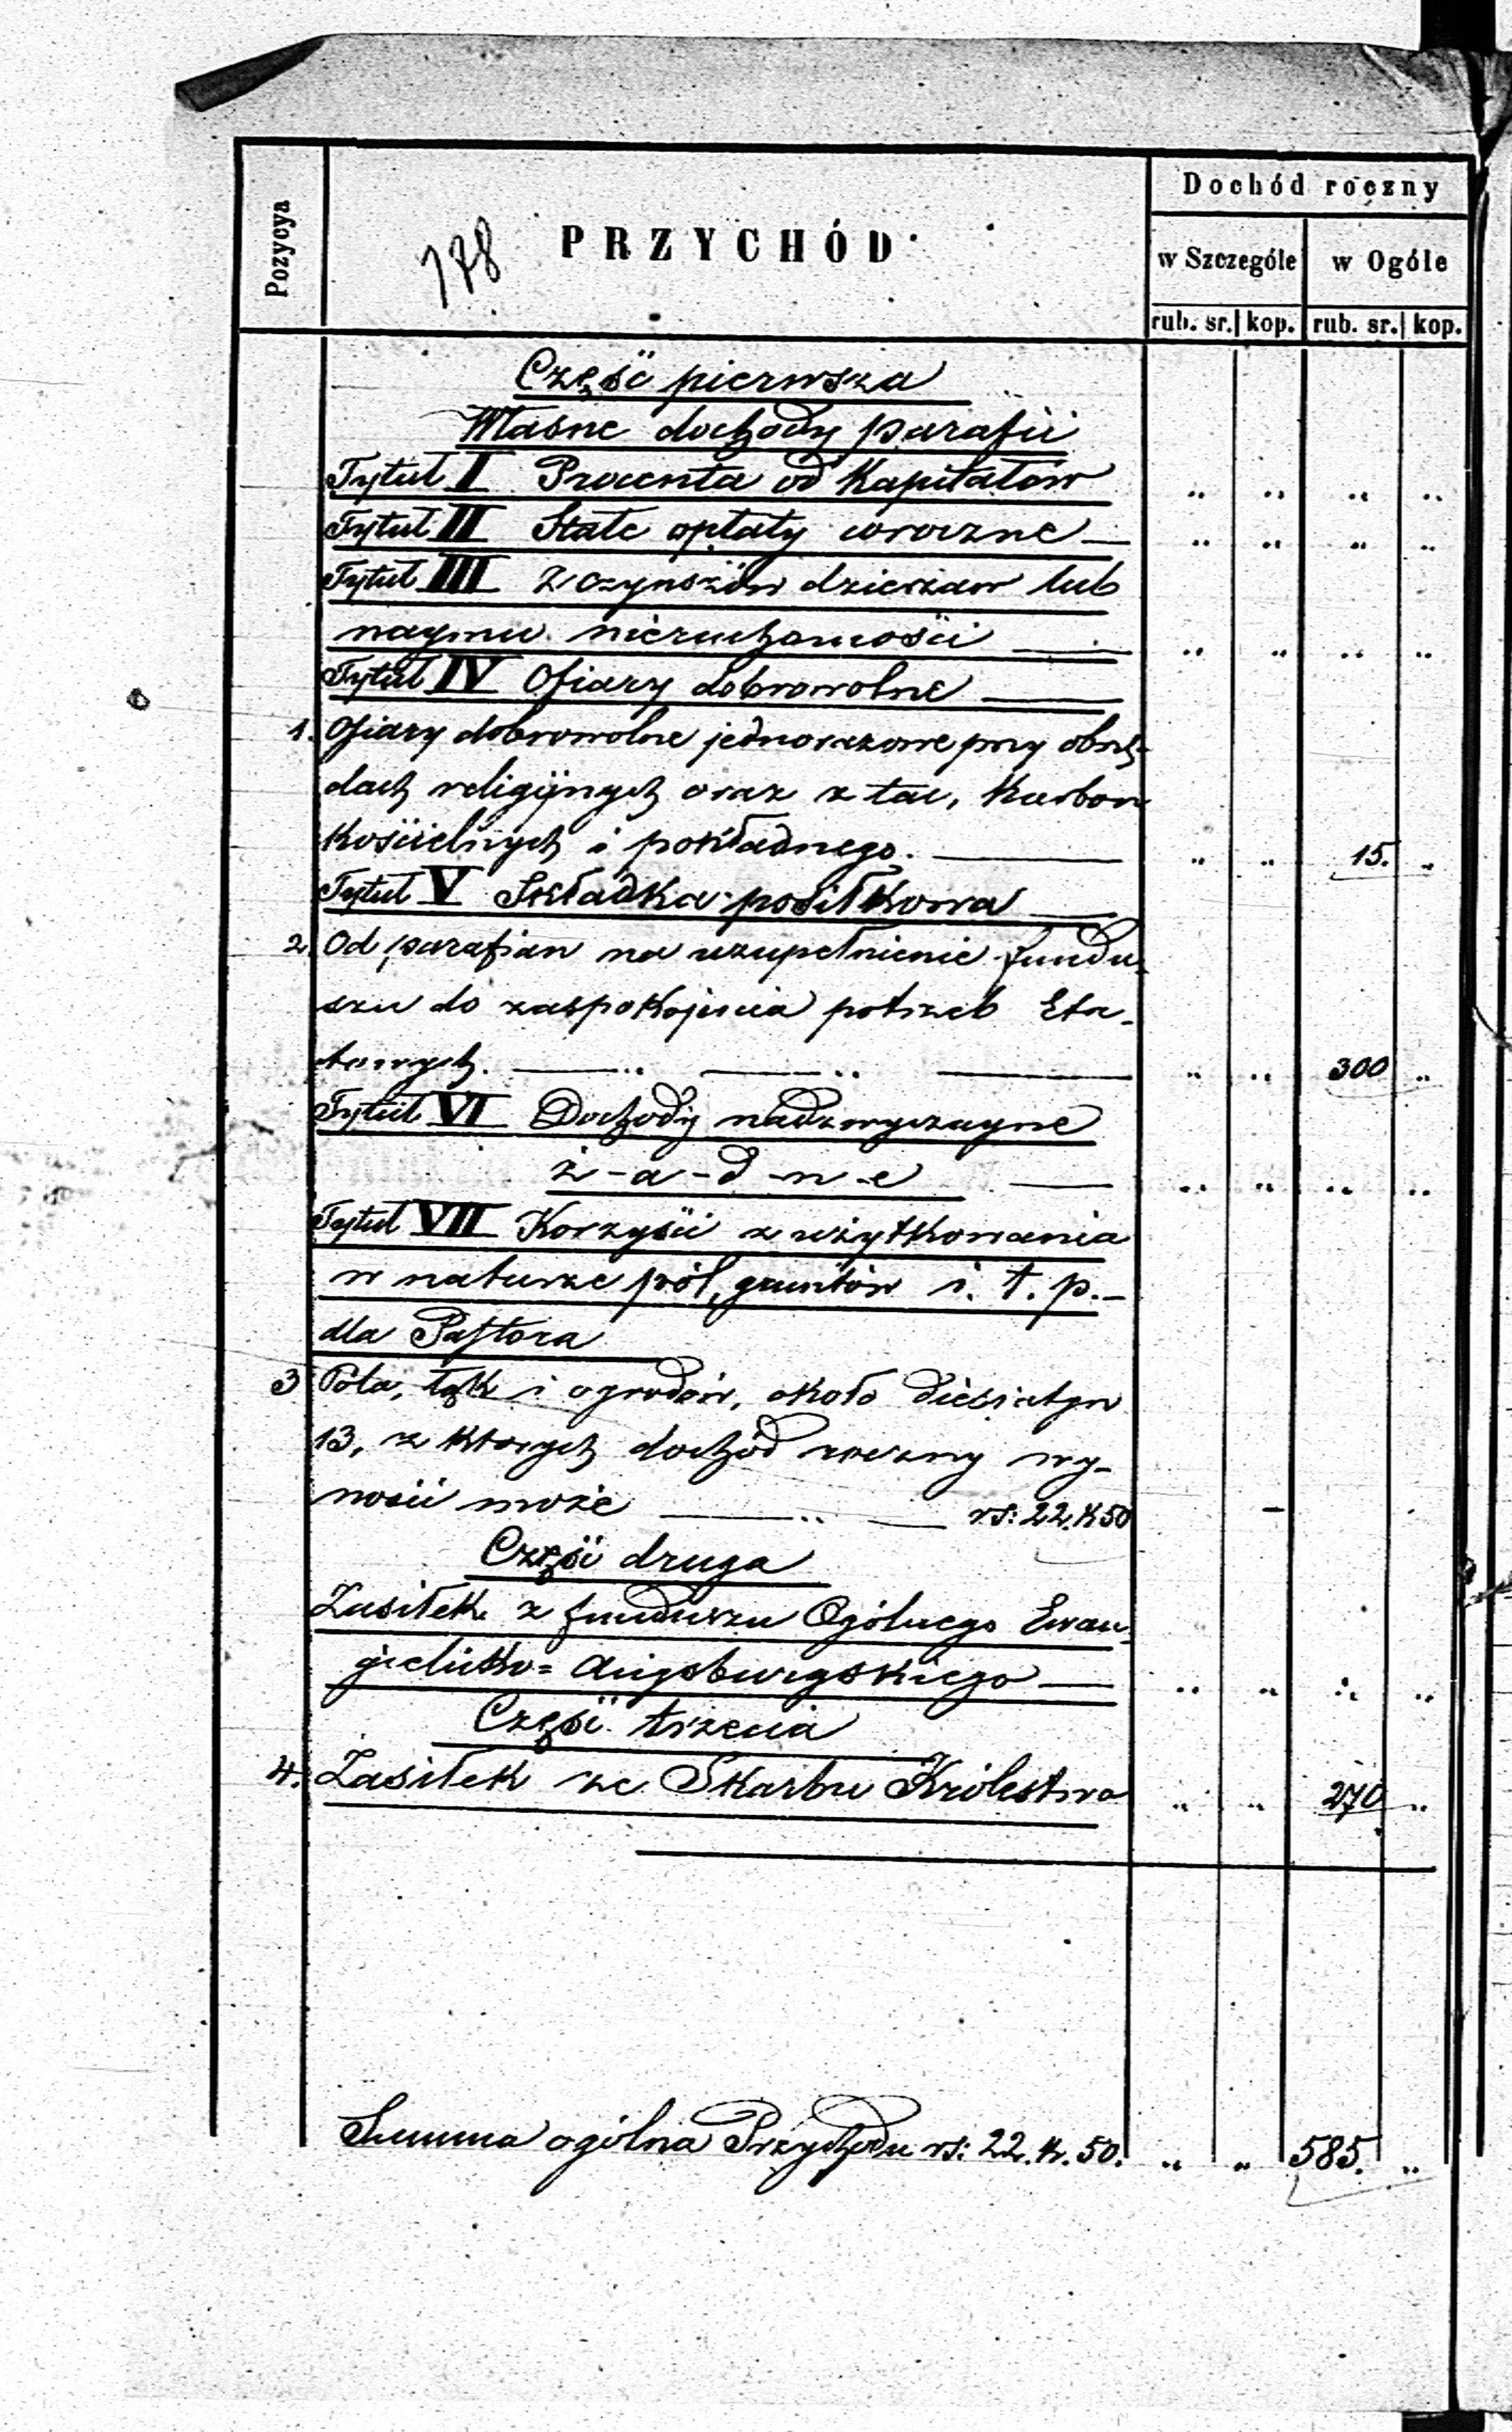 Dochód roczny
Pozycya
178
PRZYCHÓD
w Szczególe
w Ogóle
rub. sr. kop. rub. sr. kop.
Część pierwsza
Własne dochody parafii
Tytuł I Procenta od Kapitałów " " " "
Tytuł II Stałe opłaty coroczne — " " " "
Tytuł III Z czynszów dzierżaw lub
naymu nieruchomości — " " " "
Tytuł IV Ofiary dobrowolne —
1. Ofiary dobrowolne jednorazowe przy obrzę-
dach religijnych oraz z tac, Karbon
Kościelnych i pokładnego. — " " 15. "
Tytuł V Składka posiłkowa —
2. Od parafian na uzupełnienie fundu-
szu do zaspokojenia potrzeb Eta-
towych. — " — " — " " 300 "
Tytuł VI Dochody nadzwyczayne
ż-a-d-n-e — " " " "
Tytuł VII Korzyści z użytkowania
w naturze pól, gruntów i. t. p. -
dla Pastora
3 Pola, łąk i ogrodów, około diesiatyn
13, z których dochód roczny wy-
nosić może — " — rs: 22. K 50
Część druga
Zasiłek z funduszu Ogólnego Ewan-
gielicko= Augsburgskiego — " " " "
Część trzecia
4. Zasiłek ze Skarbu Królestwa " " 270 "
Summa ogólna Przychodu rs: 22. k. 50. " " 585. "